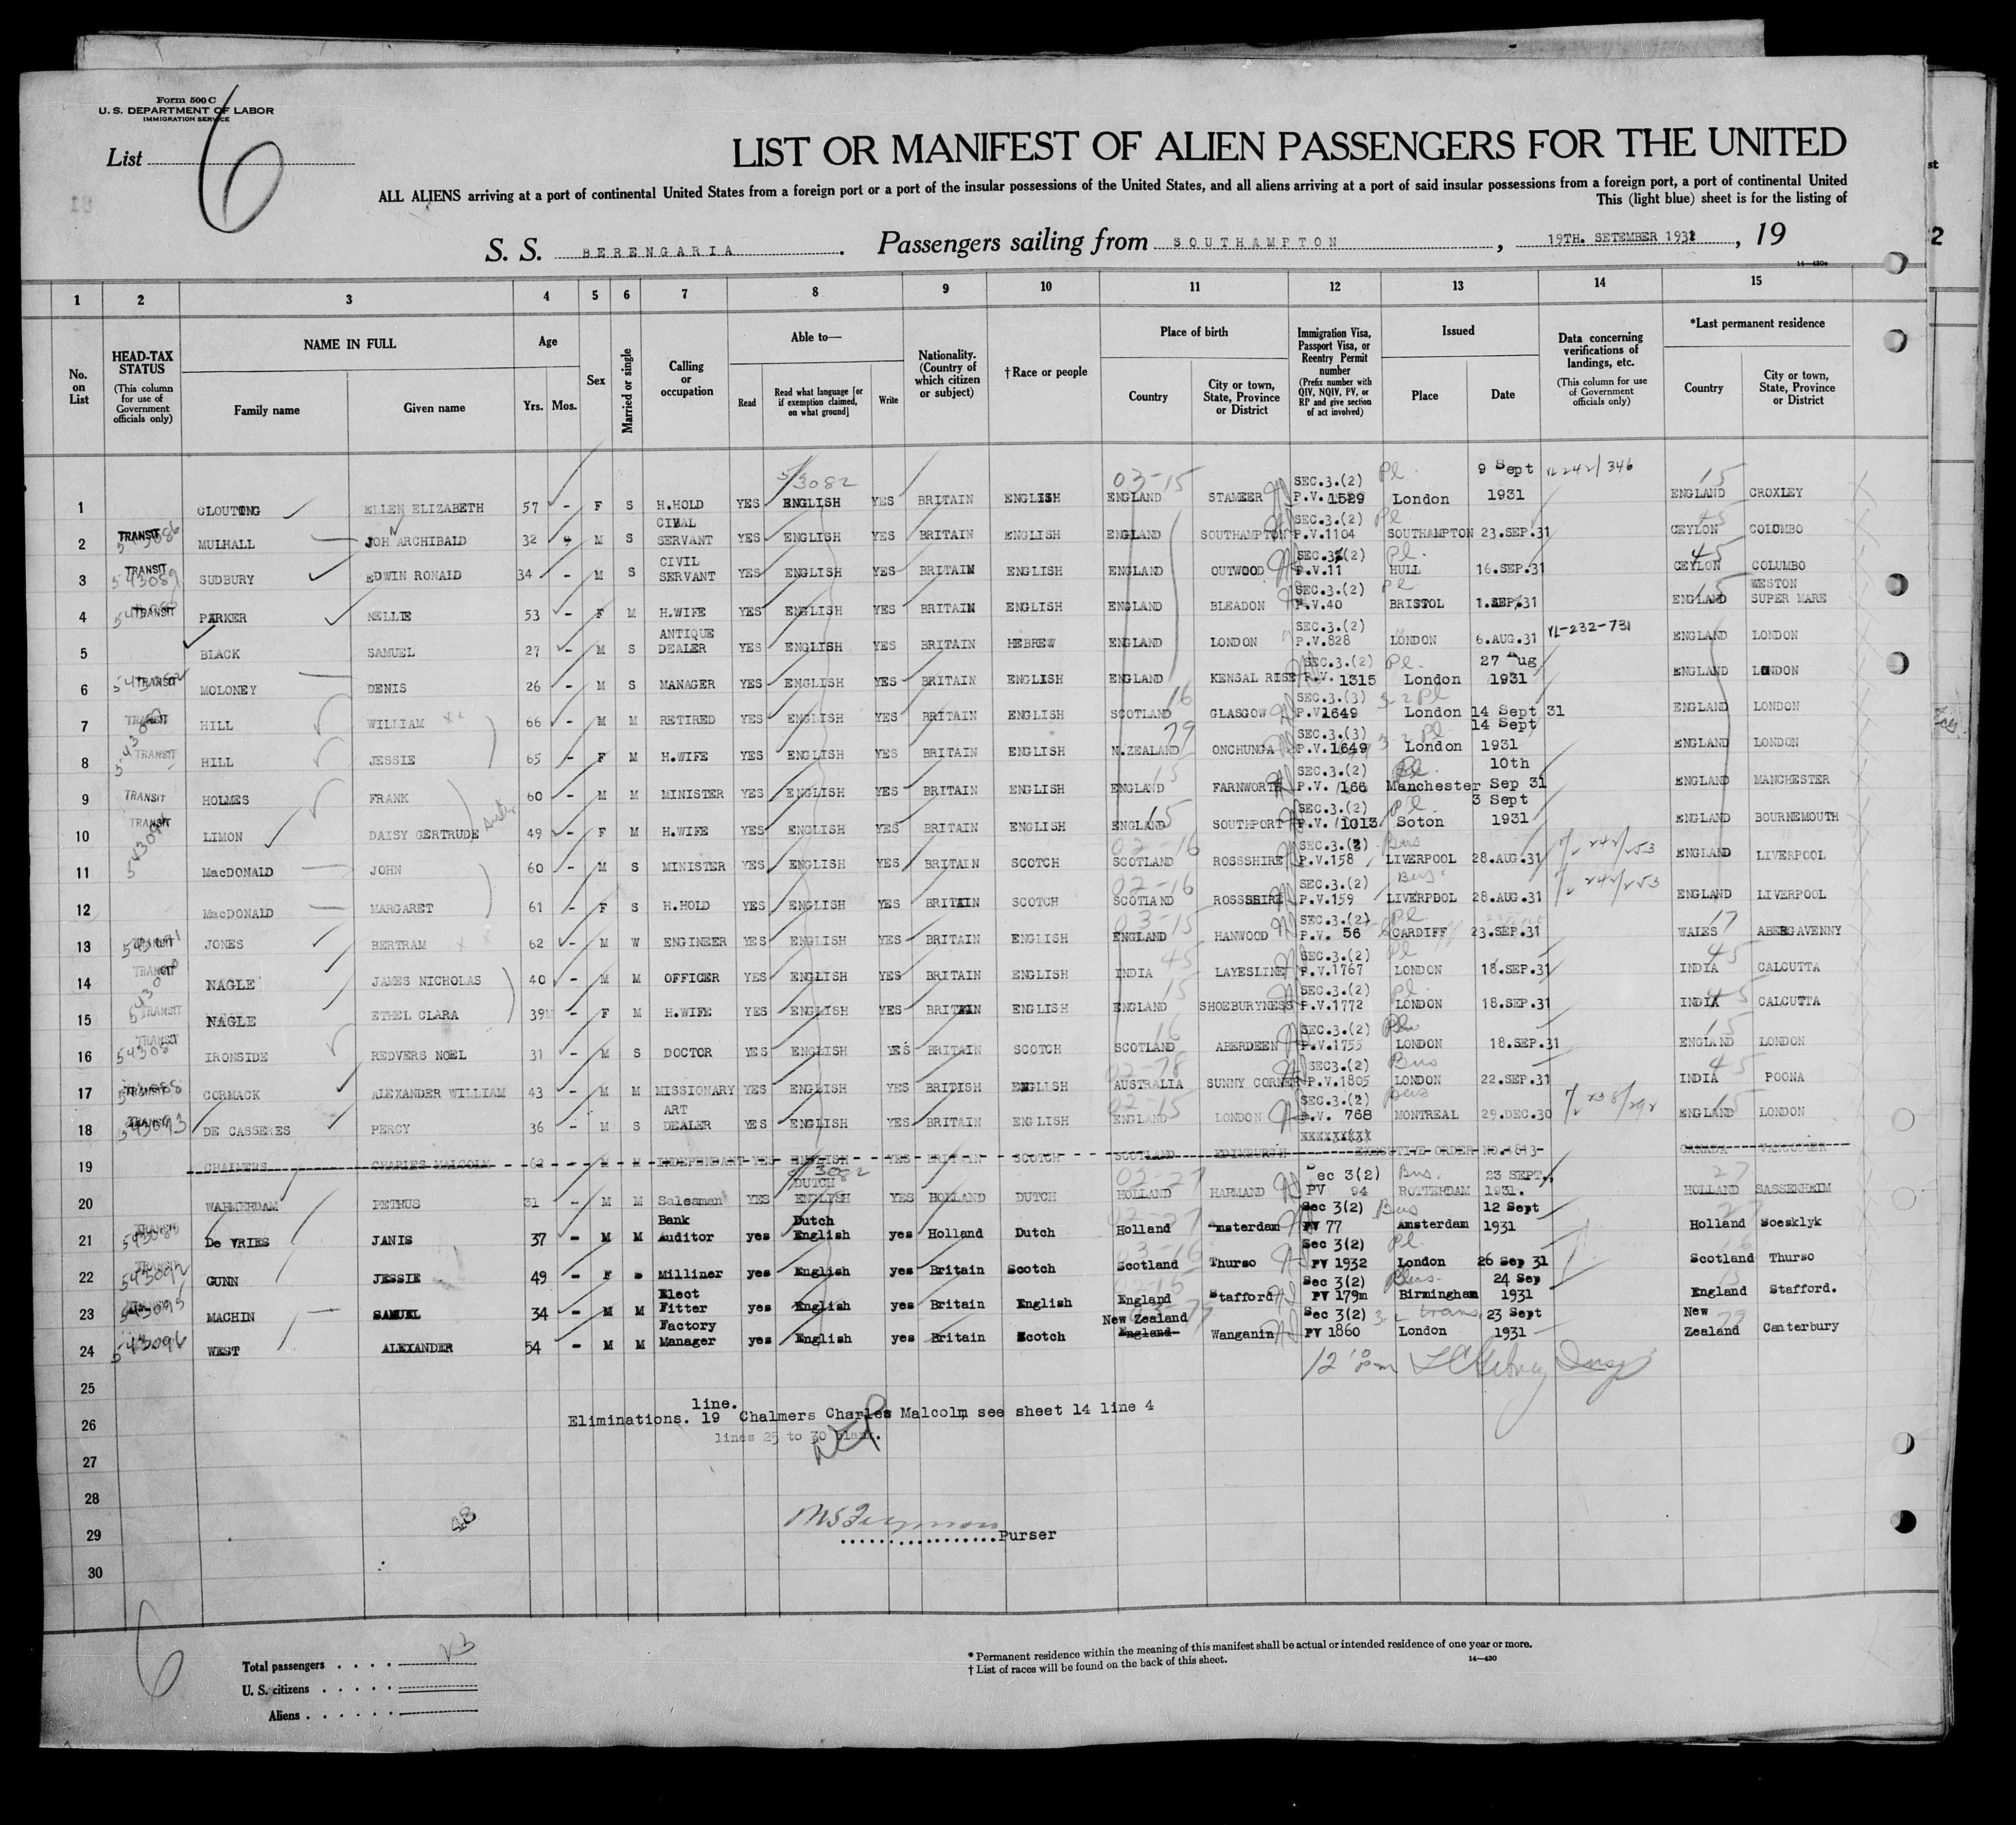 Form 500 C
U. S. DEPARTMENT OF LABOR
IMMIGRATION SERVICE
List 6
LIST OR MANIFEST OF ALIEN PASSENGERS FOR THE UNITED
ALL ALIENS arriving at a port of continental United States from a foreign port or a port of the insular possessions of the United States, and all aliens arriving at a port of said insular possessions from a foreign port, a port of continental United
This (light blue) sheet is for the listing of
S. S. BERENGARIA. Passengers sailing from SOUTHAMPTON, 19TH. SETEMBER 1931, 19
14—430c
1 2 3 4 5 6 7 8 9 10 11 12 13 14 15
No. on List
HEAD-TAX STATUS (This column for use of Government officials only)
NAME IN FULL
Family name
Given name
Age
Yrs. Mos.
Sex
Married or single
Calling or occupation
Able to—
Read
Read what language [or if exemption claimed, on what ground]
Write
Nationality. (Country of which citizen or subject)
†Race or people
Place of birth
Country
City or town, State, Province or District
Immigration Visa, Passport Visa, or Reentry Permit number (Prefix number with QIV, NQIV, PV, or RP and give section of act involved)
Issued
Place
Date
Data concerning verifications of landings, etc. (This column for use of Government officials only)
*Last permanent residence
Country
City or town, State, Province or District
5/3082 03-15
1 CLOUTING ELLEN ELIZABETH 57 - F S H.HOLD YES ENGLISH YES BRITAIN ENGLISH ENGLAND STAMEER SEC.3.(2) P.V. 1529 Pl. London 9 Sept 1931 VL 242/346 15 ENGLAND CROXLEY
2 TRANSIT 543086 MULHALL JOH ARCHIBALD 32 4 M S CIVAL SERVANT YES ENGLISH YES BRITAIN ENGLISH ENGLAND SOUTHAMPTON SEC.3.(2) P.V.1104 Pl SOUTHAMPTON 23.SEP.31 45 CEYLON COLOMBO
3 TRANSIT 543089 SUDBURY EDWIN RONAID 34 - M S CIVIL SERVANT YES ENGLISH YES BRITAIN ENGLISH ENGLAND OUTWOOD SEC.3.(2) P.V.11 Pl. HULL 16.SEP.31 45 CEYLON COLUMBO
4 TRANSIT PARKER NELLIE 53 - F M H.WIFE YES ENGLISH YES BRITAIN ENGLISH ENGLAND BLEADON SEC.3.(2) P.V.40 Pl BRISTOL 1.SEP.31 15 ENGLAND WESTON SUPER MARE
5 BLACK SAMUEL 27 - M S ANTIQUE DEALER YES ENGLISH YES BRITAIN HEBREW ENGLAND LONDON SEC.3.(2) P.V.828 LONDON 6.AUG.31 VL-232-731 ENGLAND LONDON
6 TRANSIT MOLONEY DENIS 26 - M S MANAGER YES ENGLISH YES BRITAIN ENGLISH ENGLAND KENSAL RISE SEC.3.(2) P.V. 1315 Pl. London 27 Aug 1931 ENGLAND LONDON
7 TRANSIT HILL WILLIAM 66 - M M RETIRED YES ENGLISH YES BRITAIN ENGLISH 16 SCOTLAND GLASGOW SEC.3.(3) P.V.1649 3-2 Pl London 14 Sept 31 ENGLAND LONDON
8 TRANSIT HILL JESSIE 65 - F M H.WIFE YES ENGLISH YES BRITAIN ENGLISH 79 N.ZEALAND ONCHUNGA SEC.3.(3) P.V.1649 3-2 Pl London 14 Sept 1931 ENGLAND LONDON
9 TRANSIT HOLMES FRANK 60 - M M MINISTER YES ENGLISH YES BRITAIN ENGLISH 15 ENGLAND FARNWORTH SEC.3.(2) P.V. 166 Pl. Manchester 10th Sep 31 ENGLAND MANCHESTER
10 TRANSIT LIMON DAISY GERTRUDE 49 - F M H.WIFE YES ENGLISH YES BRITAIN ENGLISH 15 ENGLAND SOUTHPORT SEC.3.(2) P.V. 1013 Pl. Soton 3 Sept 1931 ENGLAND BOURNEMOUTH
11 MacDONALD JOHN 60 - M S MINISTER YES ENGLISH YES BRITAIN SCOTCH 02-16 SCOTLAND ROSSSHIRE SEC.3.(2) P.V.158 Bus LIVERPOOL 28.AUG.31 ENGLAND LIVERPOOL
12 MacDONALD MARGARET 61 - F S H.HOLD YES ENGLISH YES BRITAIN SCOTCH 02-16 SCOTLAND ROSSSHIRE SEC.3.(2) P.V.159 Bus. LIVERPOOL 28.AUG.31 ENGLAND LIVERPOOL
13 TRANSIT JONES BERTRAM 62 - M W ENGINEER YES ENGLISH YES BRITAIN ENGLISH 03-15 ENGLAND HANWOOD SEC.3.(2) P.V. 56 Pl. CARDIFF 23.SEP.31 17 WALES ABERGAVENNY
14 TRANSIT NAGLE JAMES NICHOLAS 40 - M M OFFICER YES ENGLISH YES BRITAIN ENGLISH 45 INDIA LAYESLINE SEC.3.(2) P.V.1767 Pl LONDON 18.SEP.31 45 INDIA CALCUTTA
15 TRANSIT NAGLE ETHEL CLARA 39 - F M H.WIFE YES ENGLISH YES BRITAIN ENGLISH 15 ENGLAND SHOEBURYNESS SEC.3.(2) P.V.1772 Pl. LONDON 18.SEP.31 45 INDIA CALCUTTA
16 TRANSIT IRONSIDE REDVERS NOEL 31 - M S DOCTOR YES ENGLISH YES BRITAIN SCOTCH 16 SCOTLAND ABERDEEN SEC.3.(2) P.V.1755 LONDON 18.SEP.31 15 ENGLAND LONDON
17 TRANSIT CORMACK ALEXANDER WILLIAM 43 - M M MISSIONARY YES ENGLISH YES BRITISH ENGLISH 02-78 AUSTRALIA SUNNY CORNER SEC3.(2) P.V.1805 Bus LONDON 22.SEP.31 45 INDIA POONA
18 TRANSIT 543093 DE CASSERES PERCY 36 - M S ART DEALER YES ENGLISH YES BRITAIN ENGLISH 02-15 ENGLAND LONDON SEC.3.(2) P.V. 768 Bus MONTREAL 29.DEC.30 15 ENGLAND LONDON
19 CHALMERS CHARLES MALCOLM 62 - M M INDEPENDANT YES ENGLISH YES BRITAIN SCOTCH SCOTLAND EDINBURGH EXECUTIVE ORDER NO.4813 CANADA VANCOUVER
20 WARMERDAM PETRUS 31 - M M Salesman YES DUTCH ENGLISH YES HOLLAND DUTCH 02-27 HOLLAND HARMAND Sec 3(2) PV 94 Bus. ROTTERDAM 23 SEPT. 1931. 27 HOLLAND SASSENHEIM
21 TRANSIT 543085 De VRIES JANIS 37 - M M Bank Auditor yes Dutch English yes Holland Dutch 02-27 Holland Amsterdam Sec 3(2) PV 77 Bus Amsterdam 12 Sept 1931 27 Holland Soesklyk
22 TRANSIT GUNN JESSIE 49 - F S Milliner yes English yes Britain Scotch 03-16 Scotland Thurso Sec 3(2) PV 1932 Pl. London 26 Sep 31 Scotland Thurso
23 543095 MACHIN SAMUEL 34 - M M Elect Fitter yes English yes Britain English England Stafford Sec 3(2) PV 179m Birmingham 24 Sep 1931 England Stafford.
24 543096 WEST ALEXANDER 54 - M M Factory Manager yes English yes Britain Scotch New Zealand England Wanganin Sec 3(2) PV 1860 trans. London 23 Sept 1931 New Zealand Canterbury
25
26
27
28
29
30
line.
Eliminations. 19 Chalmers Charles Malcolm see sheet 14 line 4
lines 25 to 30 blank.
Purser
6
Total passengers 23
U. S. citizens
Aliens
* Permanent residence within the meaning of this manifest shall be actual or intended residence of one year or more.
† List of races will be found on the back of this sheet.
14—430